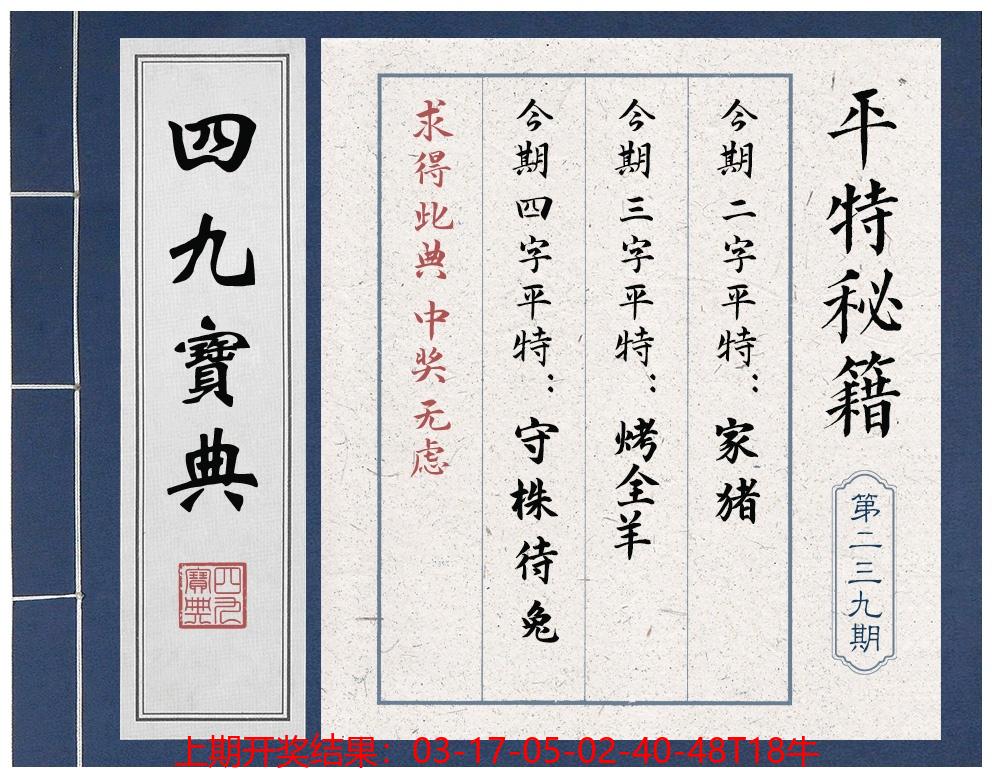 平特秘籍
第二三九期
今期二字平特：家猪
今期三字平特：烤全羊
今期四字平特：守株待兔
求得此典 中奖无虑
四九寶典
四九寶典
上期开奖结果：03-17-05-02-40-48T18牛